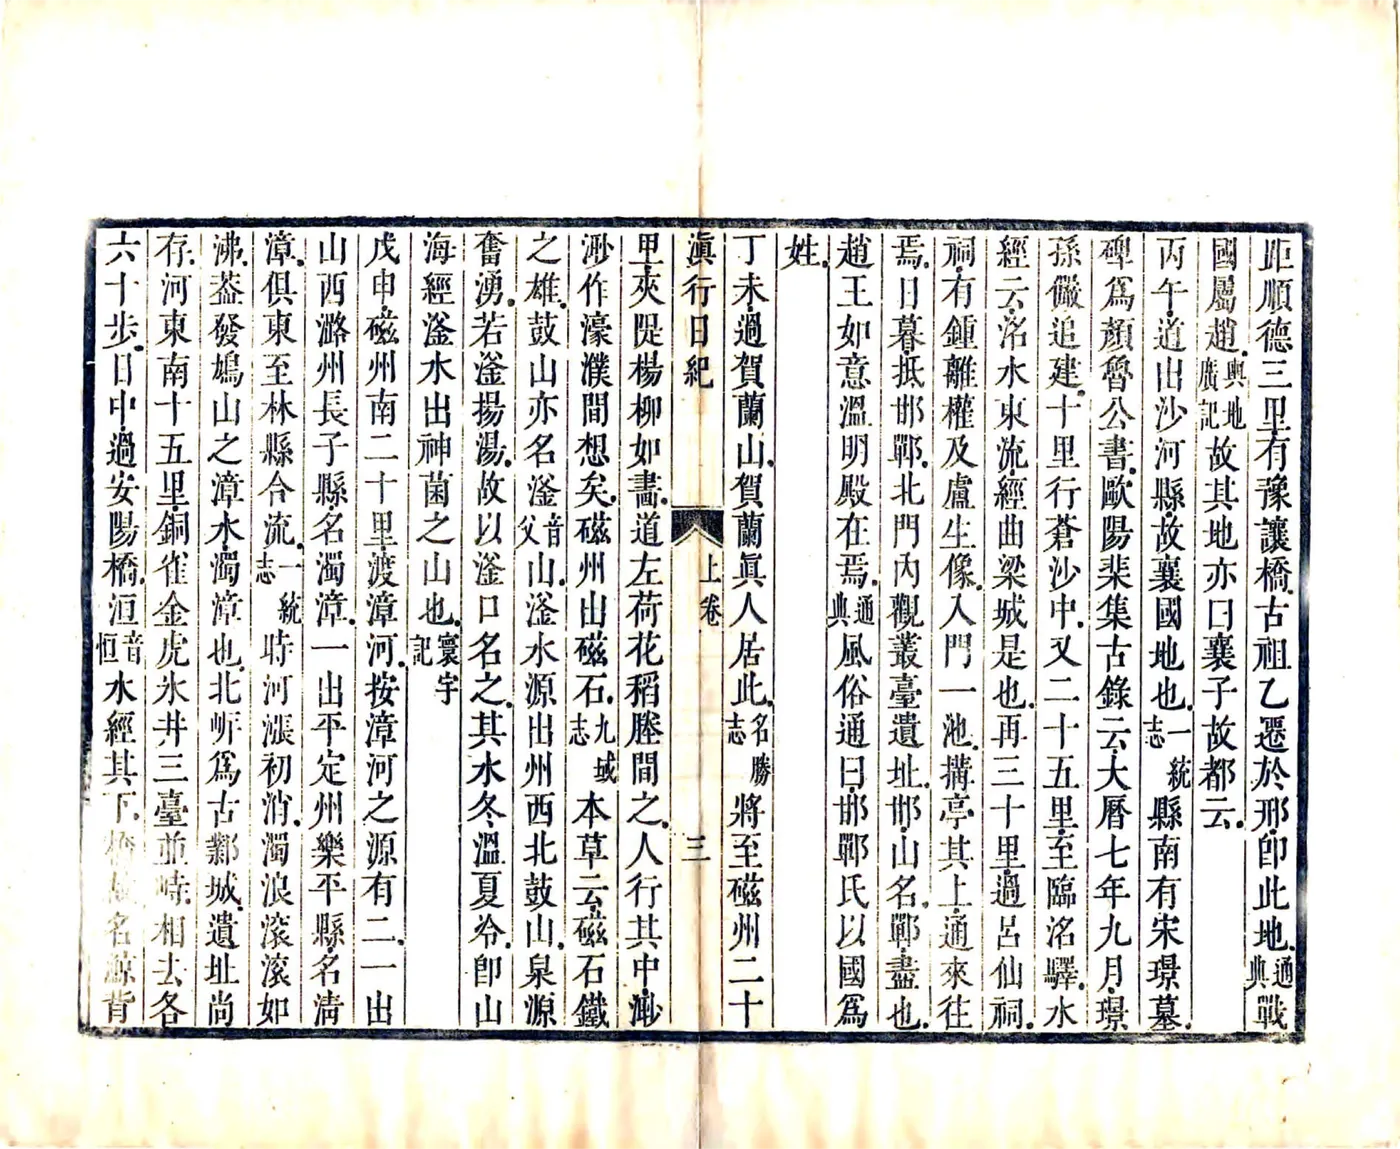 距順德三里有豫讓橋古祖乙遷於邢卽此地通典戰
國屬趙輿地廣記故其地亦曰襄子故都云
丙午道出沙河縣故襄國地也一統志縣南有宋璟墓
碑爲顏魯公書歐陽棐集古錄云大曆七年九月璟
孫儼追建十里行蒼沙中又二十五里至臨洺驛水
經云洺水東流經曲梁城是也再三十里過呂仙祠
祠有鍾離權及盧生像入門一池搆亭其上通來往
焉日暮抵邯鄲北門內觀叢臺遺址邯山名鄲盡也
趙王如意溫明殿在焉通典風俗通曰邯鄲氏以國爲
姓
丁未過賀蘭山賀蘭眞人居此名勝志將至磁州二十
滇行日紀 上卷 三
里夾隄楊柳如畫道左荷花稻塍間之人行其中渺
渺作濠濮間想矣磁州山磁石九域志本草云磁石鐵
之雄鼓山亦名滏音父山滏水源出州西北鼓山泉源
奮湧若滏揚湯故以滏口名之其水冬溫夏冷卽山
海經滏水出神菌之山也寰宇記
戊申磁州南二十里渡漳河按漳河之源有二一出
山西潞州長子縣名濁漳一出平定州樂平縣名淸
漳俱東至林縣合流一統志時河漲初消濁浪滾滾如
沸葢發鳩山之漳水濁漳也北岓爲古鄴城遺址尚
存河東南十五里銅雀金虎氷井三臺並峙相去各
六十步日中過安陽橋洹音恒水經其下橋名鯨背